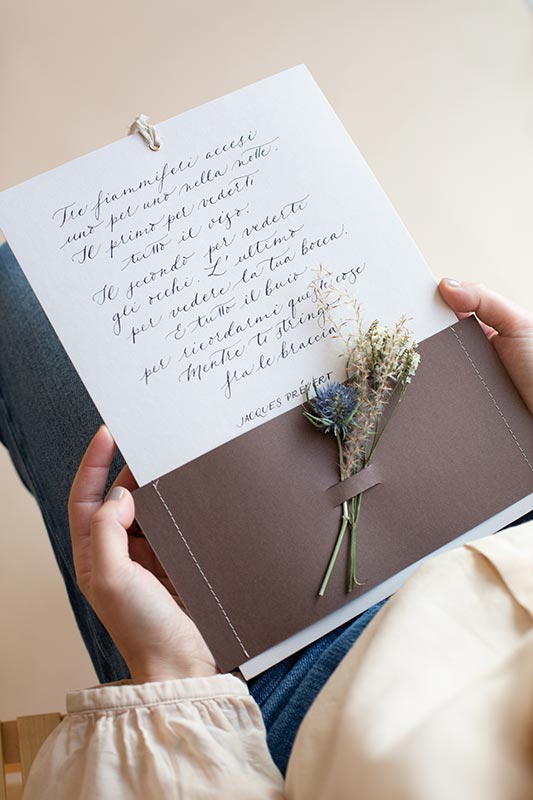 Tre fiammiferi accesi
uno per uno nella notte.
Il primo per vederti
tutto il viso.
Il secondo per vederti
gli occhi. L'ultimo
per vedere la tua bocca.
E tutto il buio
per ricordarmi queste cose
Mentre ti stringo
fra le braccia
JACQUES PRÉVERT